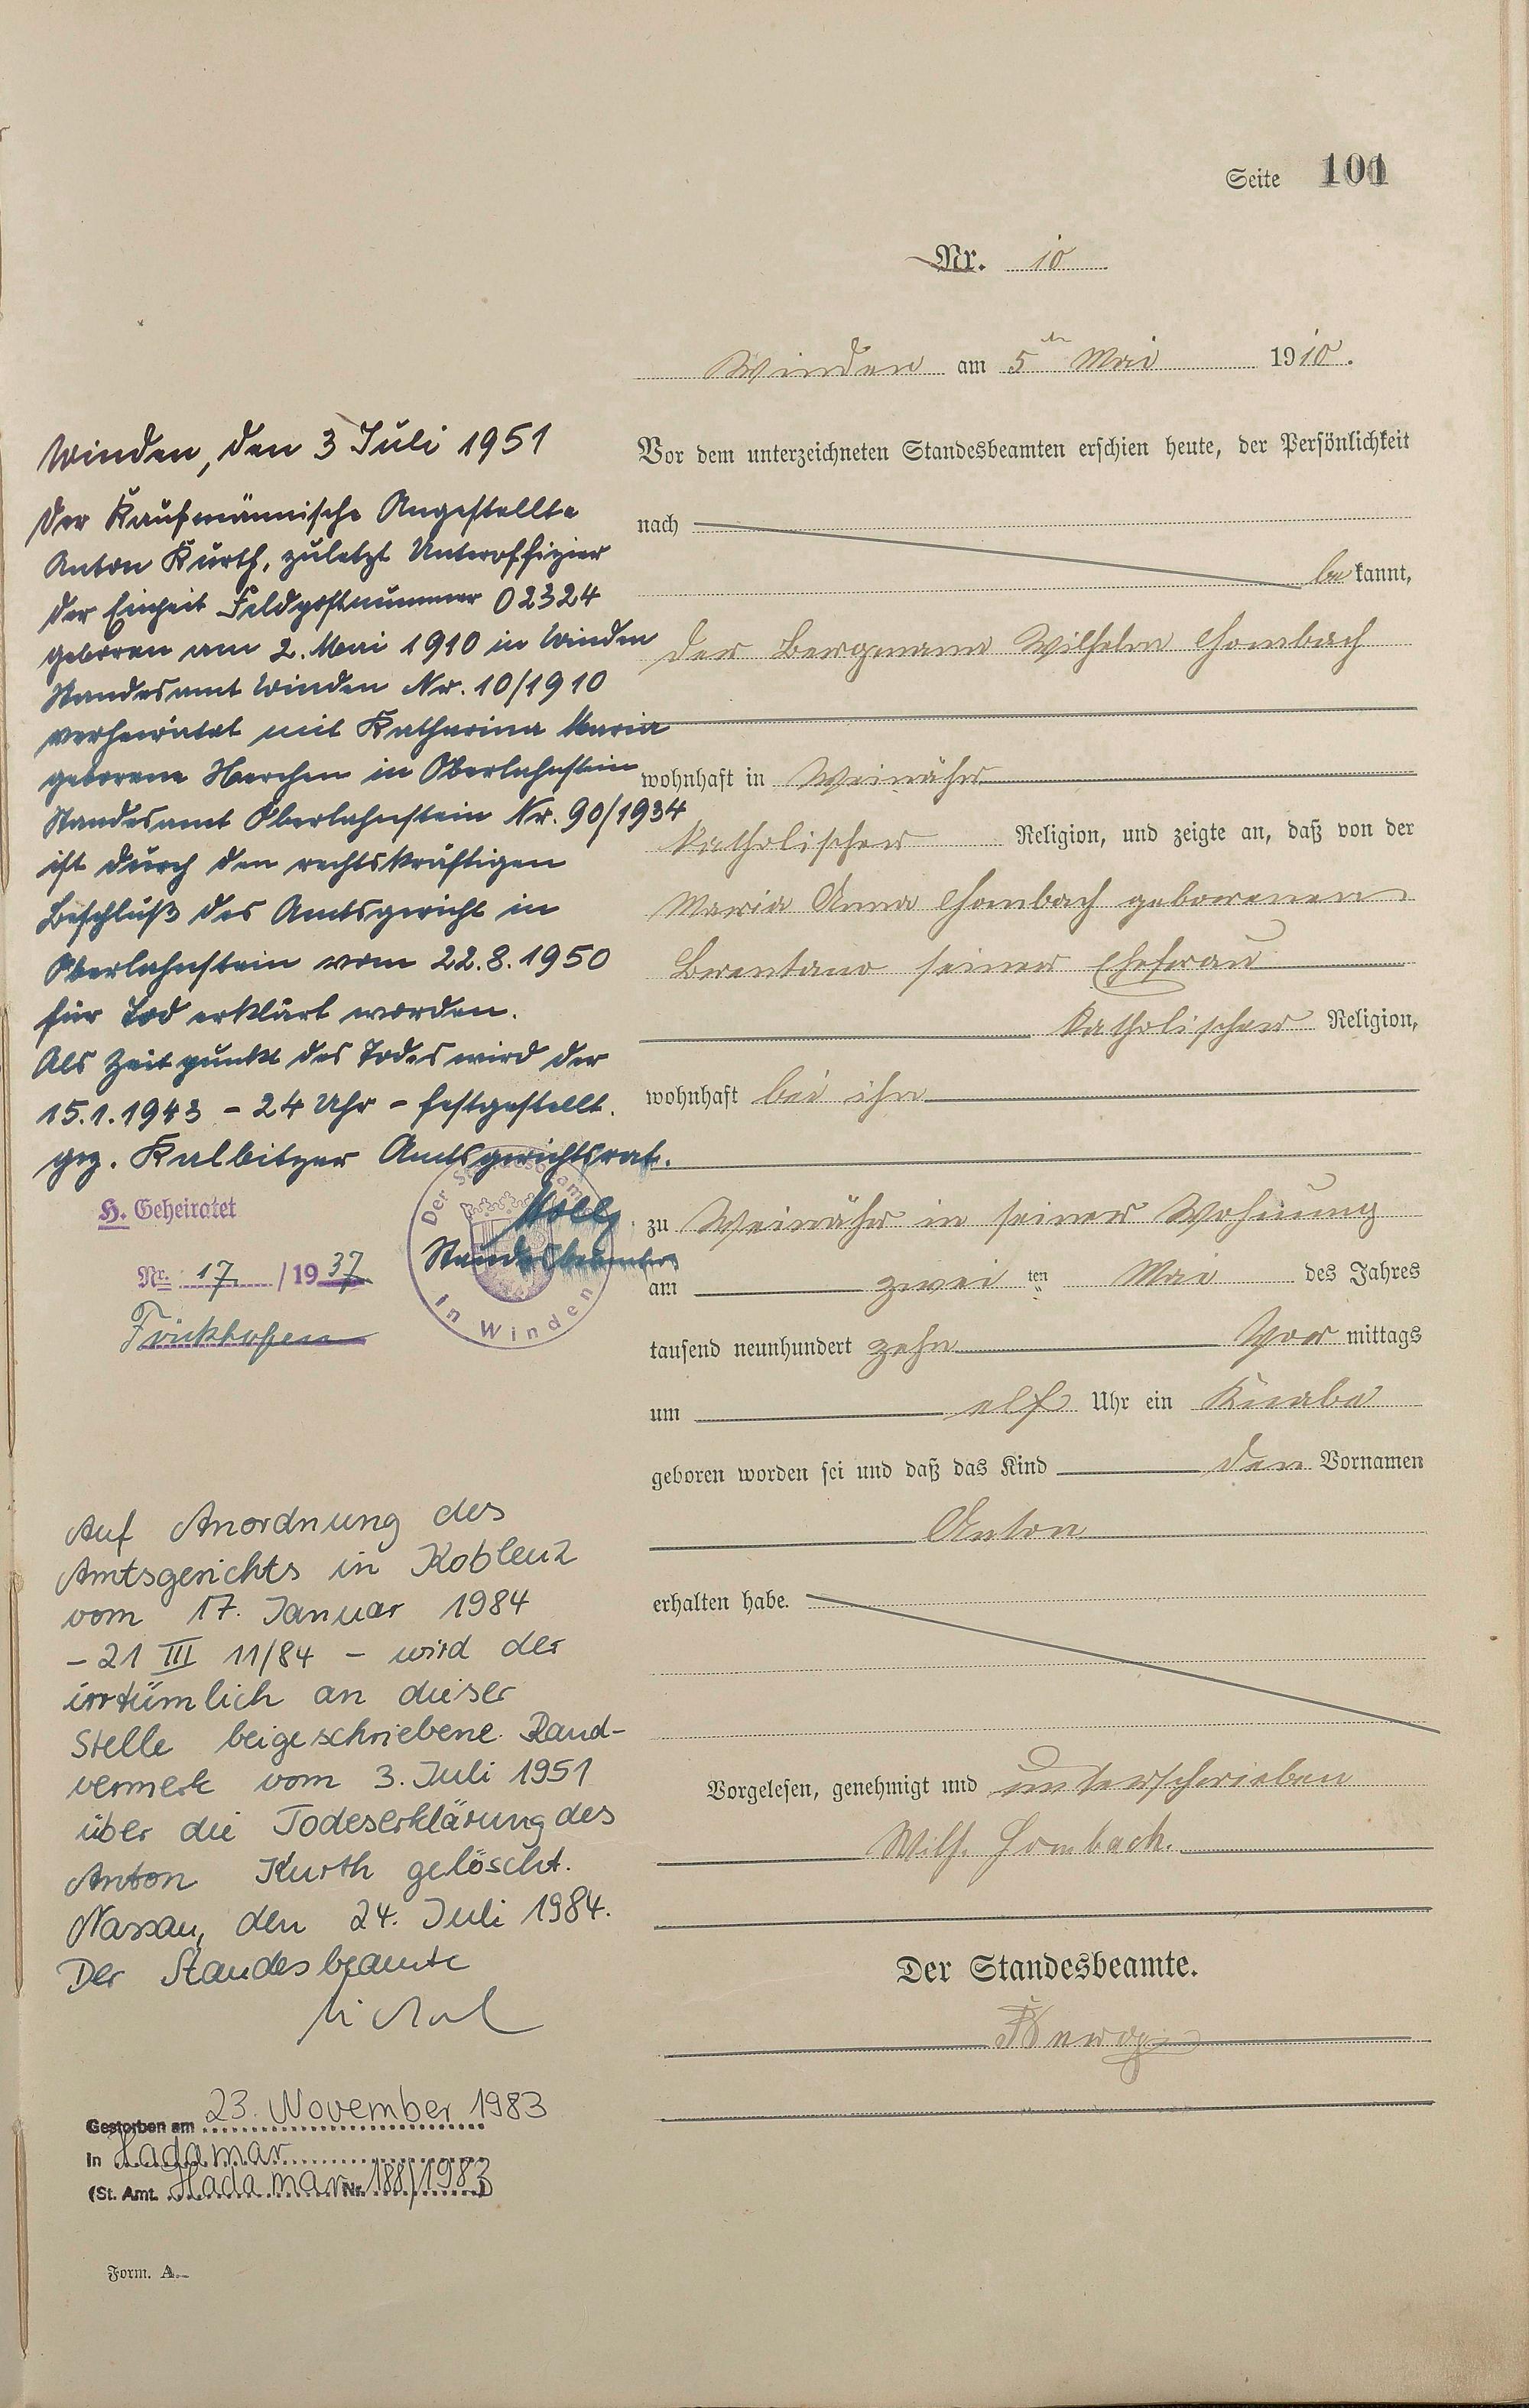 Seite 101
Nr. 10
Winden am 5ten Mai 1910.
Vor dem unterzeichneten Standesbeamten erschien heute, der Persönlichkeit
nach
bekannt,
der Bergmann Wilhelm Hombach
wohnhaft in Weinähr
katholischer Religion, und zeigte an, daß von der
Maria Anna Hombach geborenen
Brentano seiner Ehefrau
katholischer Religion,
wohnhaft bei ihm
zu Weinähr in seiner Wohnung
am zwei ten Mai des Jahres
tausend neunhundert zehn Vor mittags
um elf Uhr ein Knabe
geboren worden sei und daß das Kind den Vornamen
Anton
erhalten habe.
Vorgelesen, genehmigt und unterschrieben
Wilh. Hombach.
Der Standesbeamte.
Winden, den 3 Juli 1951
Der Kaufmännische Angestellte
Anton Kurth, zuletzt Unteroffizier
der Einheit Feldpostnummer 02324
geboren am 2. Mai 1910 in Winden
Standesamt Winden Nr. 10/1910
verheiratet mit Katharina Maria
geborene Herchen in Oberlahnstein
Standesamt Oberlahnstein Nr. 90/1934
ist durch den rechtskräftigen
Beschluß des Amtsgericht in
Oberlahnstein vom 22.8.1950
für Tod erklärt worden.
Als Zeitpunkt des Todes wird der
15.1.1943 - 24 Uhr - festgestellt.
gez. Kalbitzer Amtsgerichtsrat.
Standesbeamter
Der Standesbeamte
In Winden
H. Geheiratet
Nr. 17 / 1937
Frickhofen
Auf Anordnung des
Amtsgerichts in Koblenz
vom 17. Januar 1984
- 21 III 11/84 - wird der
irrtümlich an dieser
Stelle beigeschriebene Rand-
vermerk vom 3. Juli 1951
über die Todeserklärung des
Anton Kurth gelöscht.
Nassau, den 24. Juli 1984.
Der Standesbeamte
Gestorben am 23. November 1983
in Hadamar
(St. Amt. Hadamar Nr. 188/1983)
Form. A.